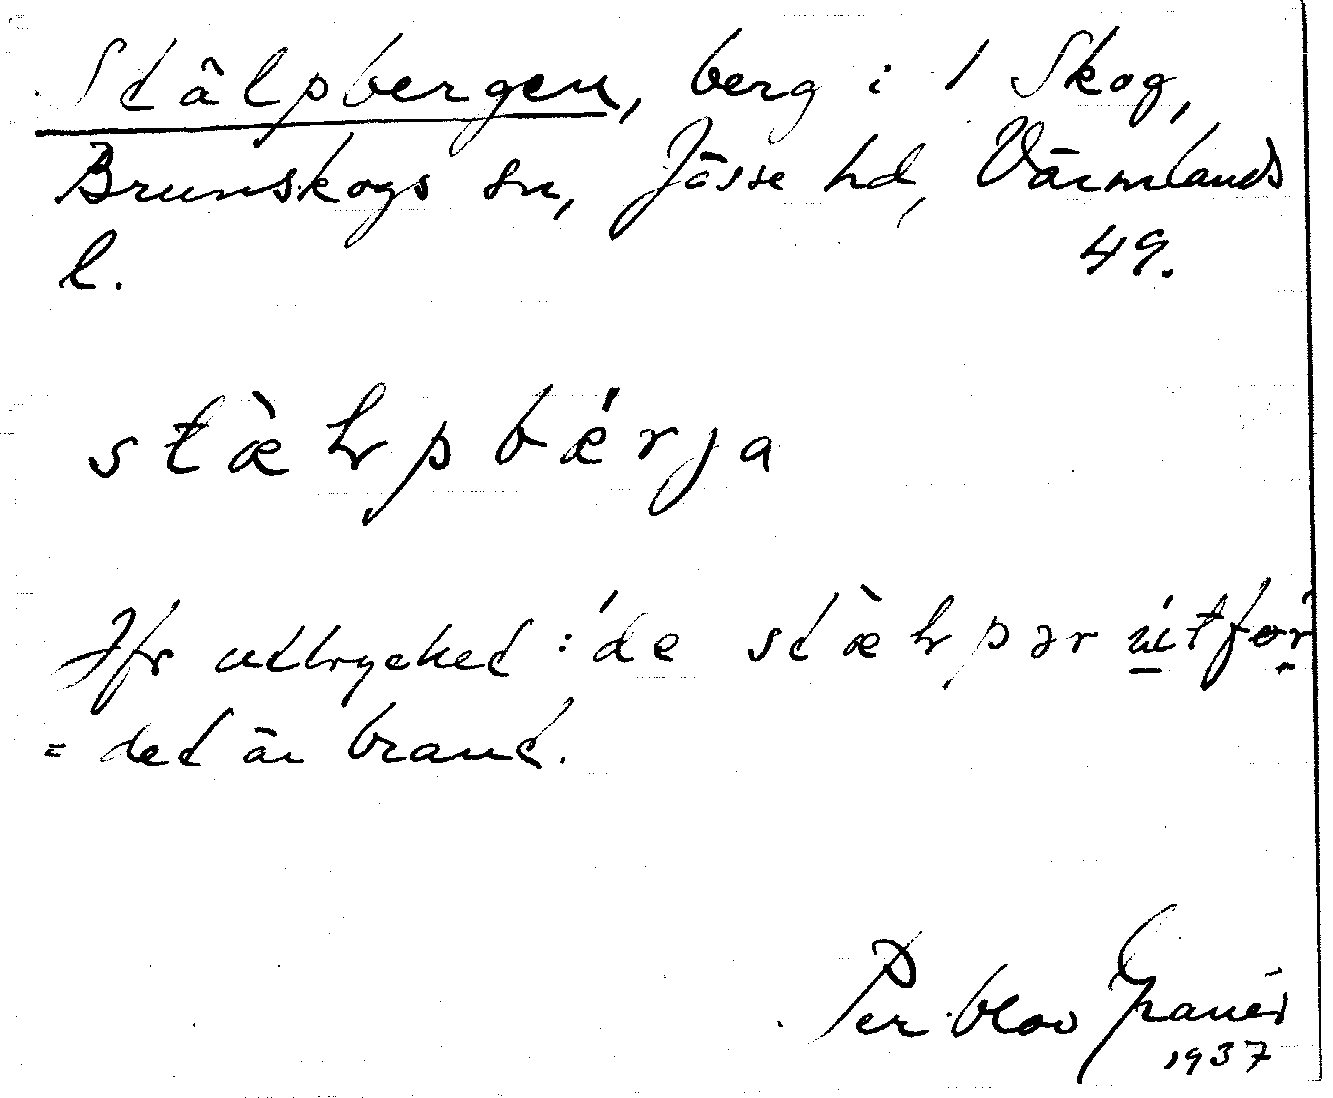 Stälpbergen, berg i 1 Skog,
Brunskogs sn, Jösse hd, Värmlands
l. 49.
stæ̀ɽpbǽrja
Jfr uttrycket: de stæ̀ɽpər útför
= det är brant.
Per Olov
1937